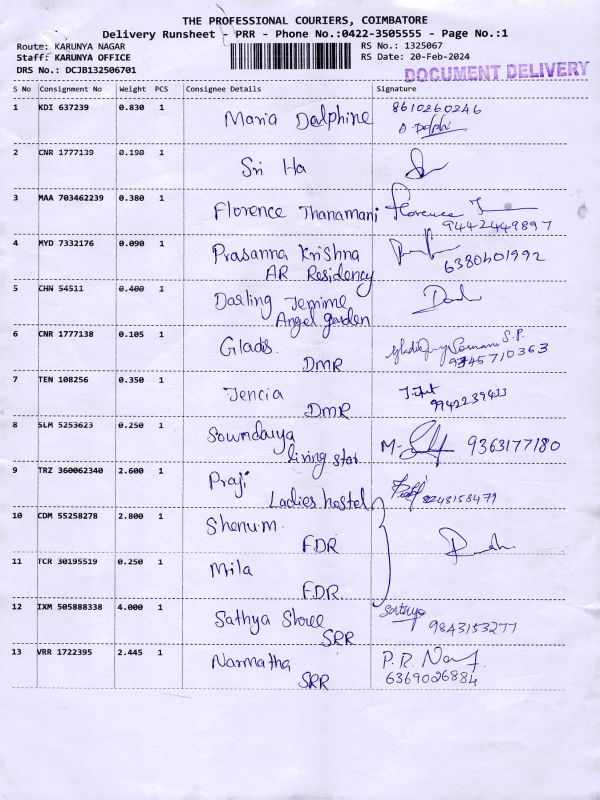 THE PROFESSIONAL COURIERS, COIMBATORE
Delivery Runsheet - PRR - Phone No.:0422-3505555 - Page No.:1
Route: KARUNYA NAGAR RS No.: 1325067
Staff: KARUNYA OFFICE RS Date: 20-Feb-2024
DRS No.: DCJB132506701
DOCUMENT DELIVERY
S No Consignment No Weight PCS Consignee Details Signature
1 KDI 637239 0.830 1 Maria Dalphine 8610260246
2 CNR 1777139 0.190 1 Sri Ha
3 MAA 703462239 0.380 1 Florence Thanamani Florence
9442449897
4 MYD 7332176 0.090 1 Prasanna Krishna
AR Residency 6380601992
5 CHN 54511 0.400 1 Darling Jemime
Angel garden
6 CNR 1777138 0.105 1 Gladis
DMR
7 TEN 108256 0.350 1 Jencia
DMR
8 SLM 5253623 0.250 1 Sowndarya
living star 9363177180
9 TRZ 360062340 2.600 1 Praji
Ladies hostel 8248158479
10 CDM 55258278 2.800 1 Shenu.m.
FDR
11 TCR 30195519 0.250 1 Mila
FDR
12 IXM 505888338 4.000 1 Sathya Shree
SRR 9843153277
13 VRR 1722395 2.445 1 Narmatha P.R.
SRR 6369026884